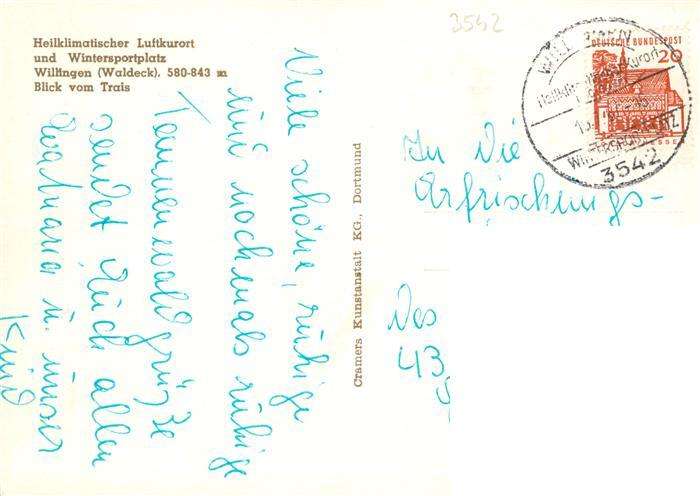 3542
Heilklimatischer Luftkurort
und Wintersportplatz
Willingen (Waldeck), 580-843 m
Blick vom Trais
Viele schöne, ruhige
und nochmals ruhige
Tannenwaldgrüße
sendet Euch allen
u. unser
Kind
Cramers Kunstanstalt KG., Dortmund
An die
Erfrischungs-
Des
43
DEUTSCHE BUNDESPOST
20
3542